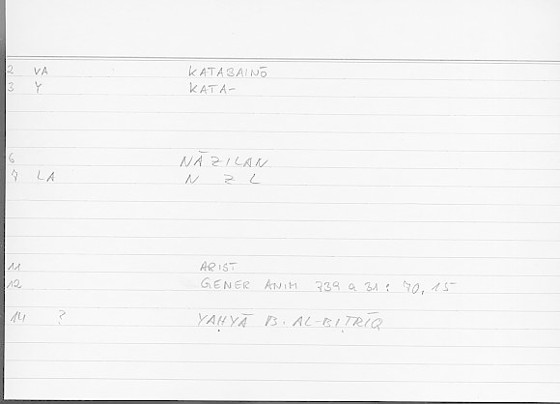 2 VA KATABAINŌ
3 Y KATA-
6 NĀZILAN
7 LA N Z L
11 ARIST
12 GENER ANIM 739 a 31 : 70, 15
14 ? YAḤYĀ B. AL-BIṬRĪQ